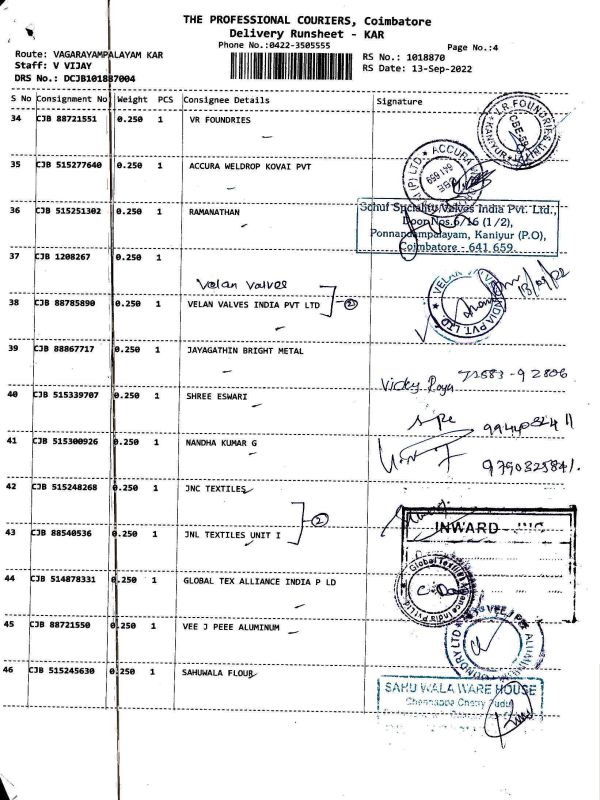 THE PROFESSIONAL COURIERS, Coimbatore
Delivery Runsheet - KAR
Phone No.:0422-3505555
Page No.:4
Route: VAGARAYAMPALAYAM KAR
Staff: V VIJAY
DRS No.: DCJB101887004
RS No.: 1018870
RS Date: 13-Sep-2022
S No Consignment No Weight PCS Consignee Details Signature
34 CJB 88721551 0.250 1 VR FOUNDRIES
V.R. FOUNDRIES
35 CJB 515277640 0.250 1 ACCURA WELDROP KOVAI PVT
ACCURA
641 659
36 CJB 515251302 0.250 1 RAMANATHAN
Schuf Speciality Valves India Pvt. Ltd.,
Door Nos.6/16 (1/2),
Ponnandampalayam, Kaniyur (P.O),
Coimbatore - 641 659.
37 CJB 1208267 0.250 1
Velan Valves
38 CJB 88785890 0.250 1 VELAN VALVES INDIA PVT LTD
2
VELAN VALVES INDIA PVT. LTD
39 CJB 88867717 0.250 1 JAYAGATHIN BRIGHT METAL
Vicky Raya
40 CJB 515339707 0.250 1 SHREE ESWARI
41 CJB 515300926 0.250 1 NANDHA KUMAR G
42 CJB 515248268 0.250 1 JNC TEXTILES
2
43 CJB 88540536 0.250 1 JNL TEXTILES UNIT I
INWARD
44 CJB 514878331 0.250 1 GLOBAL TEX ALLIANCE INDIA P LD
45 CJB 88721550 0.250 1 VEE J PEEE ALUMINUM
46 CJB 515245630 0.250 1 SAHUWALA FLOUR
SAHU WALA WARE HOUSE